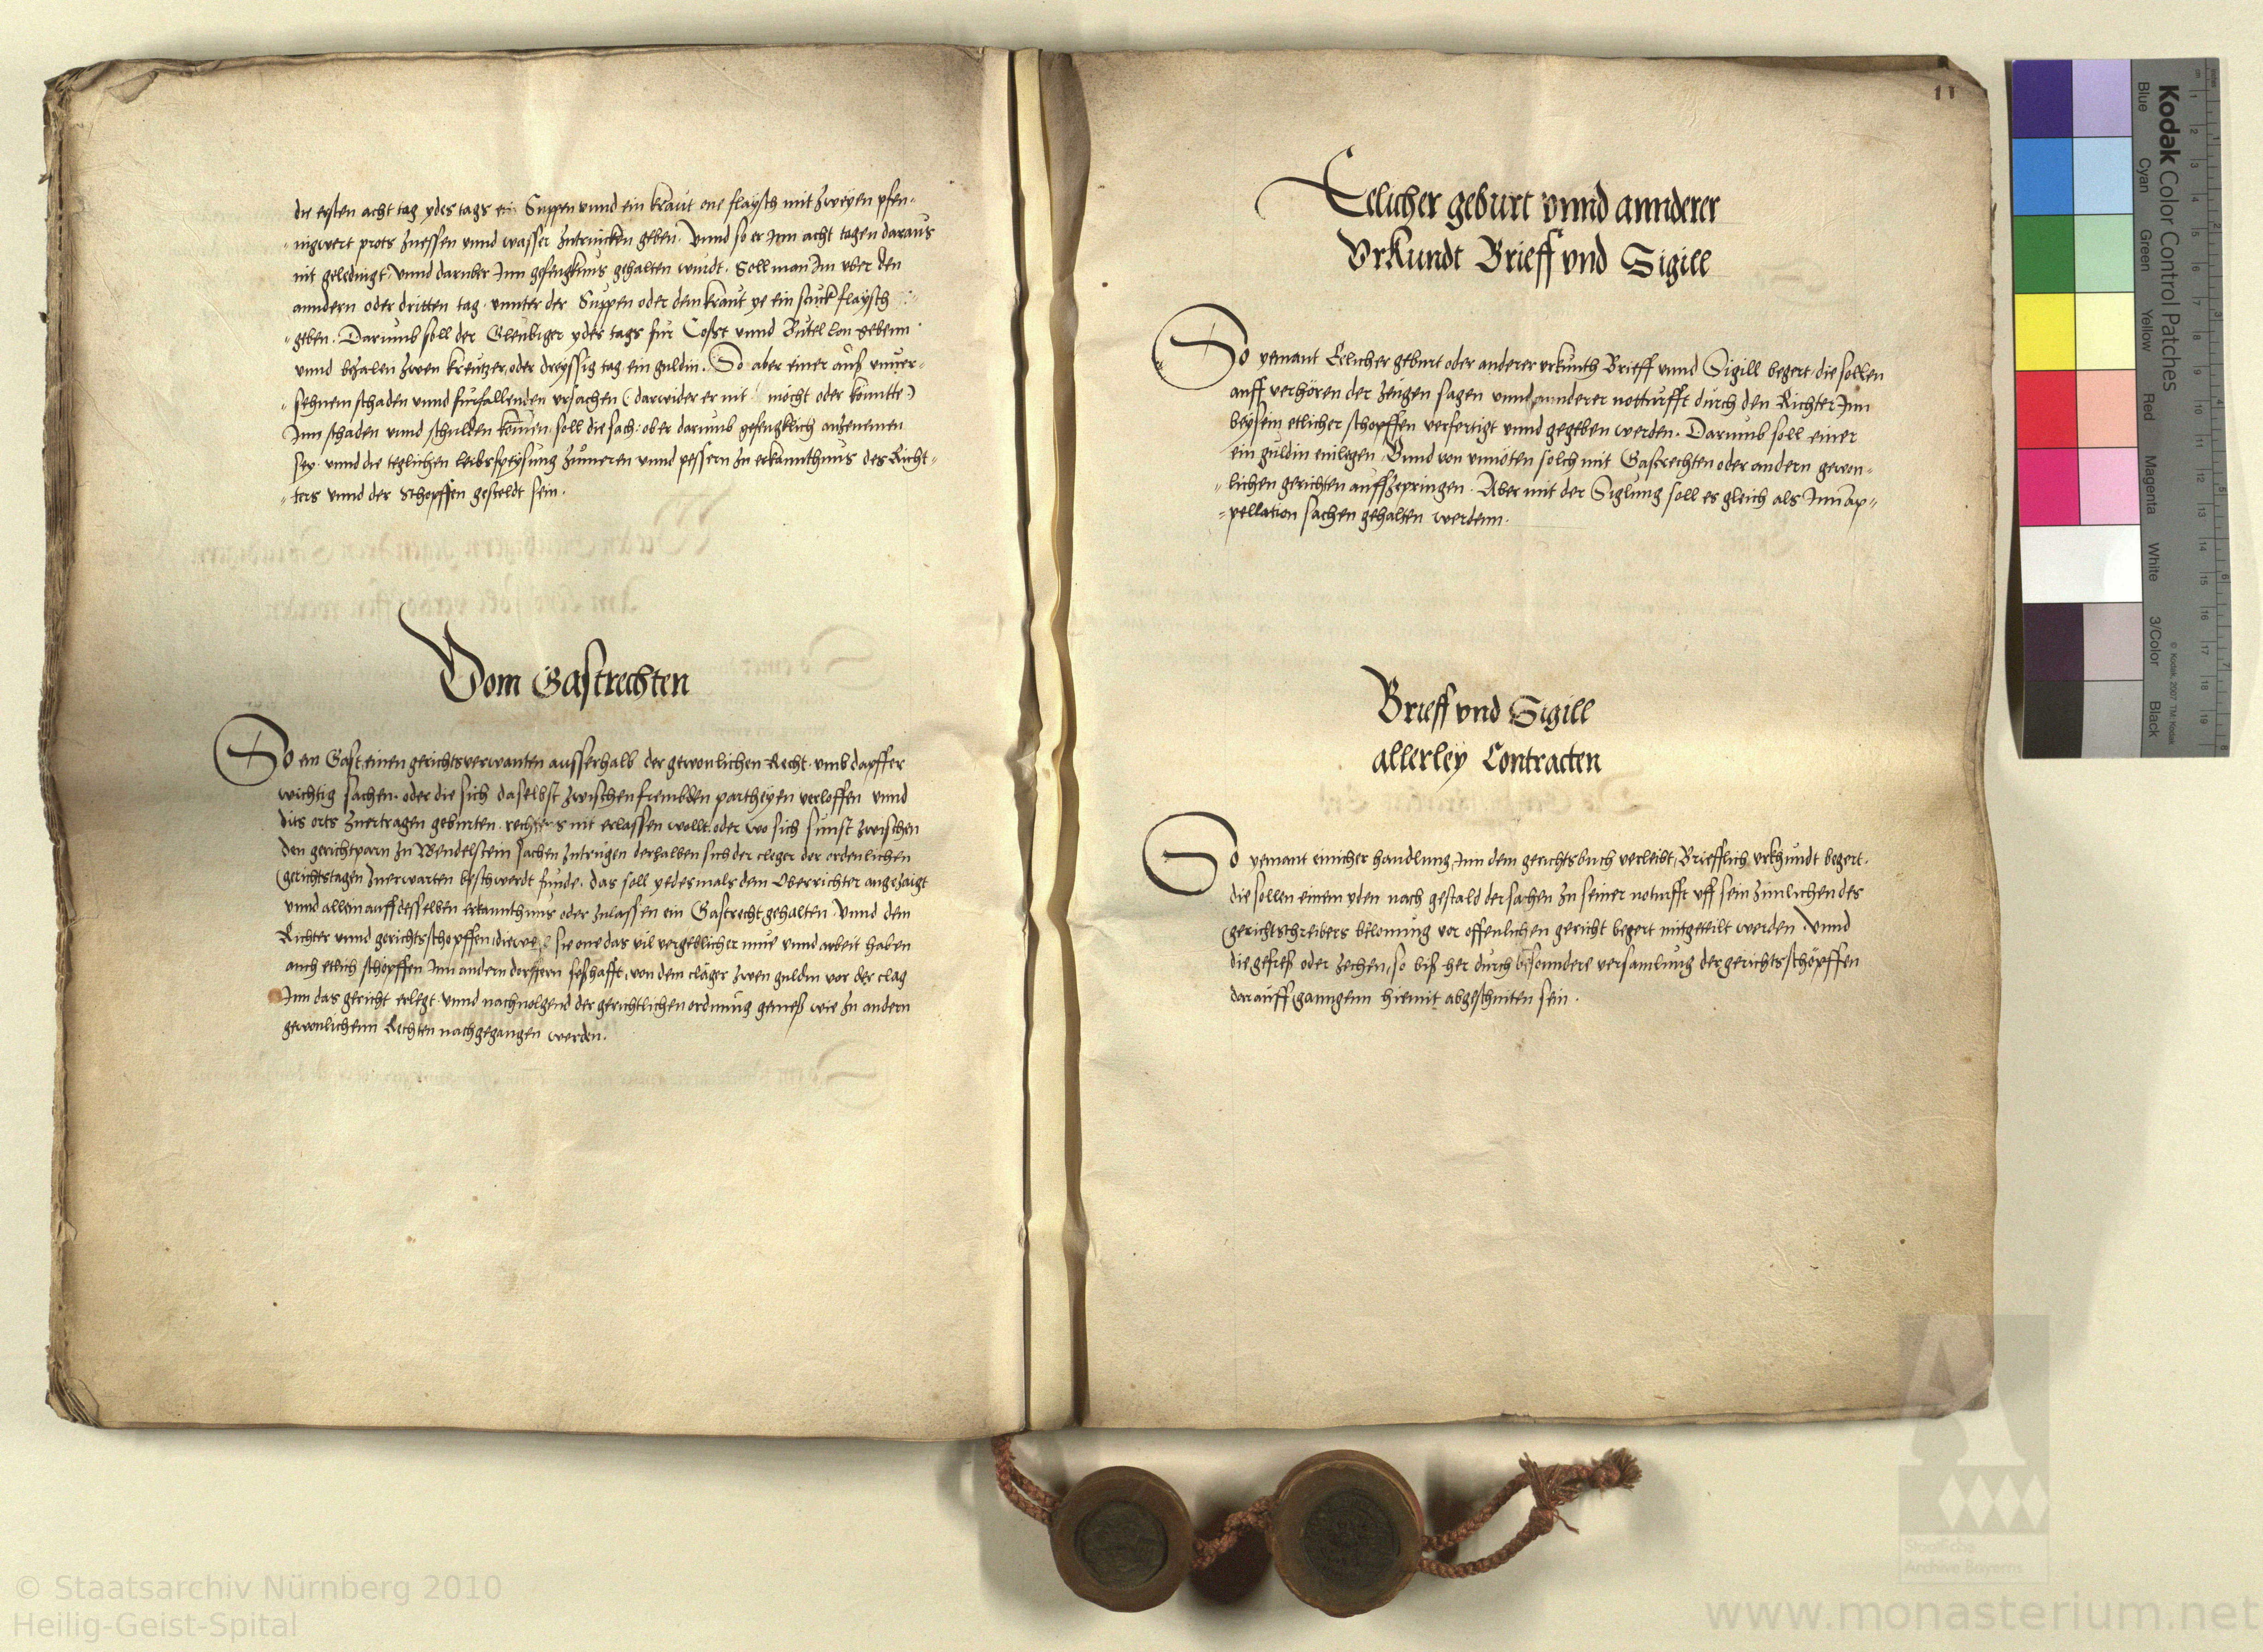 die ersten acht tag ydes tags ein Suppen vnnd ein kraut one flaysch mit zweyen pfen-
nigwert prots zuessen vnnd wasser zutrincken geben. Vnnd so er Inn acht tagen daraus
nit geledingt vnnd daruber Inn gefengknus gehalten wurdt. Soll man Im vber den
anndern oder dritten tag vnnter der Suppen oder dem kraut ye ein stuck flaysch
geben. Darumb soll der Gleubiger ydes tags fur Cosst vnnd Butel lon gebenn
vnnd bezalen zwen kreutzer, oder dreyssig tag ein guldin. So aber einer auß vnuer-
sehnem schaden vnnd furfallenden vrsachen (darwider er nit möcht oder konntte)
Inn schaden vnnd schulden komen, soll die sach: ober darumb gefengklich anzenemen
sey. vnnd die teglichen leibsspeysung zumeren vnnd pessern zu erkanntnus des Richt-
ters vnnd der Schopffen gesteldt sein.
Vom Gastrechten
So ein Gast, einen gerichtsverwanten ausserhalb der gewonlichen Recht, vmb dapffer
wichtig sachen, oder die sich daselbst zwischen frembden partheyen verloffen vnnd
dits orts zuertragen geburten, rechtens nit erlassen wollt, oder wo sich sunst zwischen
den gerichtparn zu Wendelstein sachen zutrugen derhalben sich der cleger der ordenlichen
gerichtstagen zuerwarten beschwerdt funde. das soll yedesmals dem Oberrichter angezaigt
vnnd allein auff desselben erkanntnus oder zulassen ein Gastrecht gehalten. Vnnd dem
Richter vnnd gerichtsschopffen, dieweil sie one das vil vergeblicher mue vnnd arbeit haben
auch etlich schöpffen Inn andern dorffern seßhafft, von dem cläger zwen guldin vor der clag
Inn das gericht erlegt vnnd nachuolgend der gerichtlichen ordnung gemeß wie zu andern
gewonlichenn Rechten nachgegangen werden.
11
Eelicher geburt vnnd annderer
Vrkundt Brieff vnd Sigill
So yemant Eelicher geburt oder anderer vrkunth Brieff vnnd Sigill begert, die sollen
auff verhören der zeugen sagen vnnd annderer notturfft durch den Richter Inn
beysein etlicher schopffen verfertigt vnnd gegeben werden. Darumb soll einer
ein guldin einlegen. Vnnd von vnnöten solch mit Gastrechten oder andern gewon-
lichen gerichten auffzepringen. Aber mit der Siglung soll es gleich als Inn ap-
pellation sachen gehalten werdenn.
Brieff vnd Sigill
allerley Contracten
So yemant einicher handlung, Inn dem gerichtsbuch verleibt, Briefflich vrkhundt begert.
die sollen einem yden nach gestald der sachen zu seiner noturfft vff sein zimlichen des
gerichtschreibers belonung vor offenlichen gericht begert mitgeteilt werden. Vnnd
die gefreß oder zechen, so biß her durch besonndere versamlung der gerichtsschöpffen
darauff ganngenn hiemit abgeschniten sein.
Kodak Color Control Patches
Blue Cyan Green Yellow Red Magenta White 3/Color Black
© Kodak, 2007 TM: Kodak
Staatliche
Archive Bayerns
© Staatsarchiv Nürnberg 2010
Heilig-Geist-Spital
www.monasterium.net